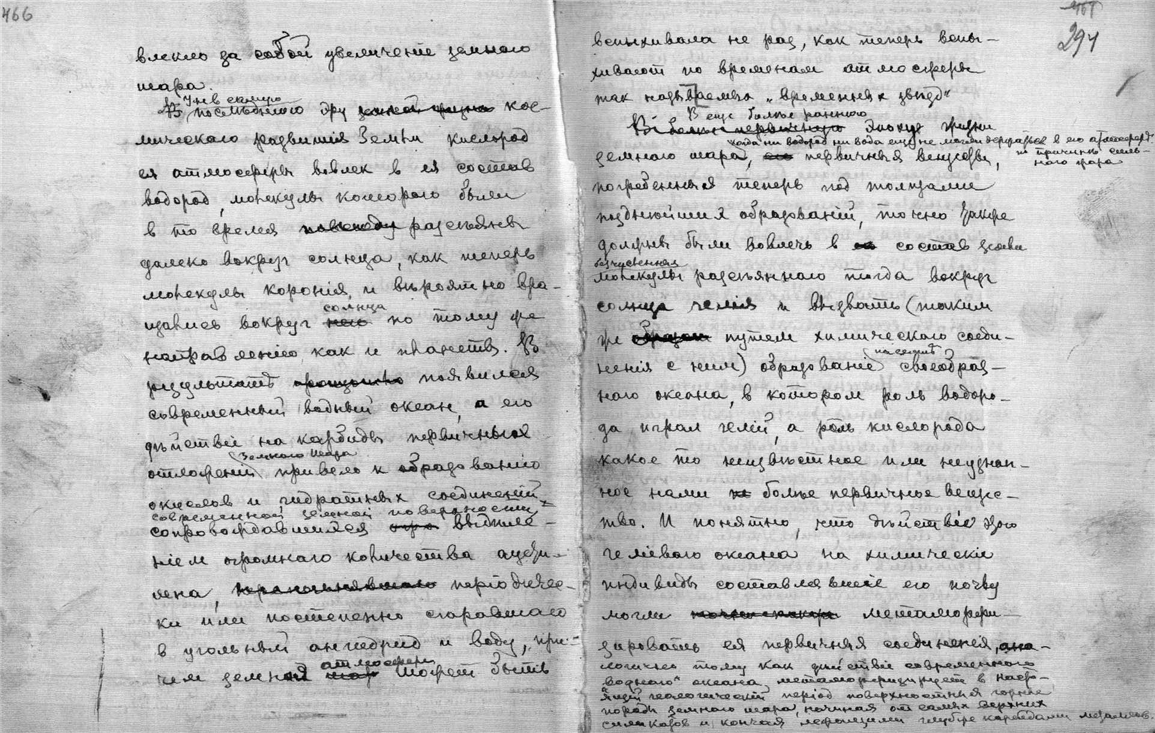 466
влекло за собой увеличение земного
шара.
В ту же
последнюю эру кос-
мическаго развития Земли кислород
ея атмосферы вовлек в ея состав
водород, молекулы котораго были
в то время разсеяны
далеко вокруг солнца, как теперь
молекулы корония, и вероятно вра-
щались вокруг солнца по тому же
направлению как и планеты. В
результате появился
современный водный океан, а его
действие на карбиды первичных
отложений земного шара привело к образованию
окислов и гидратных соединений
современной земной поверхности,
сопровождавшемуся выделе-
нием огромнаго количества ацети-
лена, периодичес-
ки или постепенно сгоравшаго
в угольный ангедрид и воду, при-
чем земная атмосфера может быть
294
вспыхивала не раз, как теперь вспы-
хивают по временам атмосферы
так называемых „временных звезд“
В еще более раннюю
эпоху жизни
когда ни водород ни вода еще не могли держаться в его атмосфере
по причине силь-
наго жара
земного шара, первичныя вещества,
погребенныя теперь под толщами
позднейших образований, точно также
должны были вовлечь в состав
молекулы разсеяннаго тогда вокруг
солнца гелия и вызвать (таким
же путем химическаго соеди-
нения с ним) образование на земле своеобраз-
наго океана, в котором роль водоро-
да играл гелий, а роль кислорода
какое то неизвестное или неузнан-
ное нами более первичное веще-
ство. И понятно, что действие этого
гелиеваго океана на химические
индивиды составлявшие его почву
могли метаморфи-
зировать ея первичныя соединения, ана-
логично тому как действие современнаго
„воднаго“ океана метаморфизирует в насто-
ящий геологический период поверхностныя горныя
породы земного шара, начиная от самых верхних
силикатов и кончая лежащими глубже карбидами металлов.